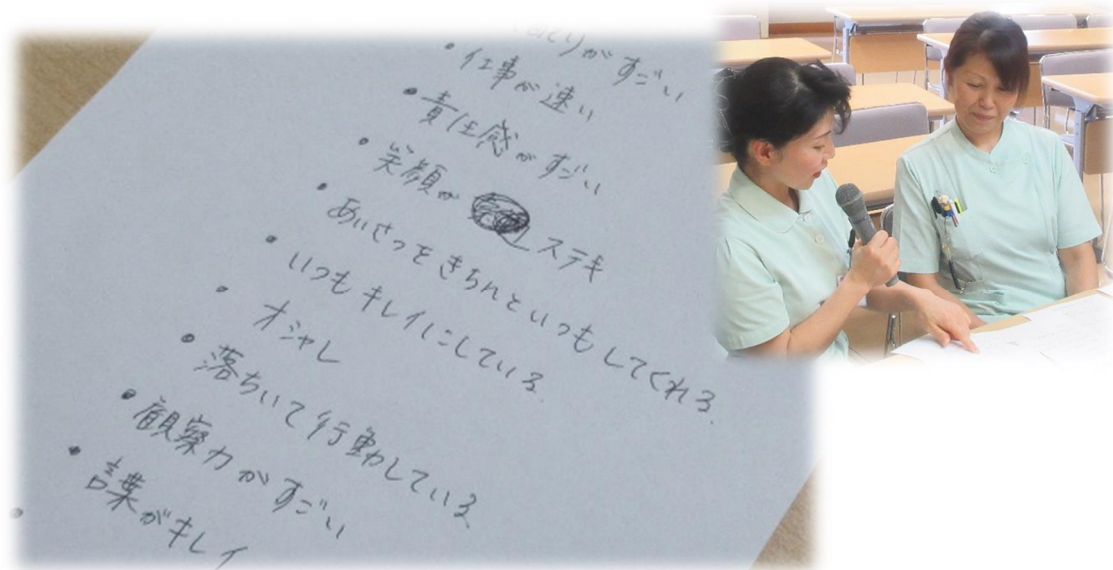 がすごい
・仕事が速い
・責任感がすごい
・笑顔が ステキ
・あいさつをきちんといつもしてくれる。
・いつもキレイにしている。
・オシャレ
・落ちいて行動している
・観察力がすごい
・言葉がキレイ